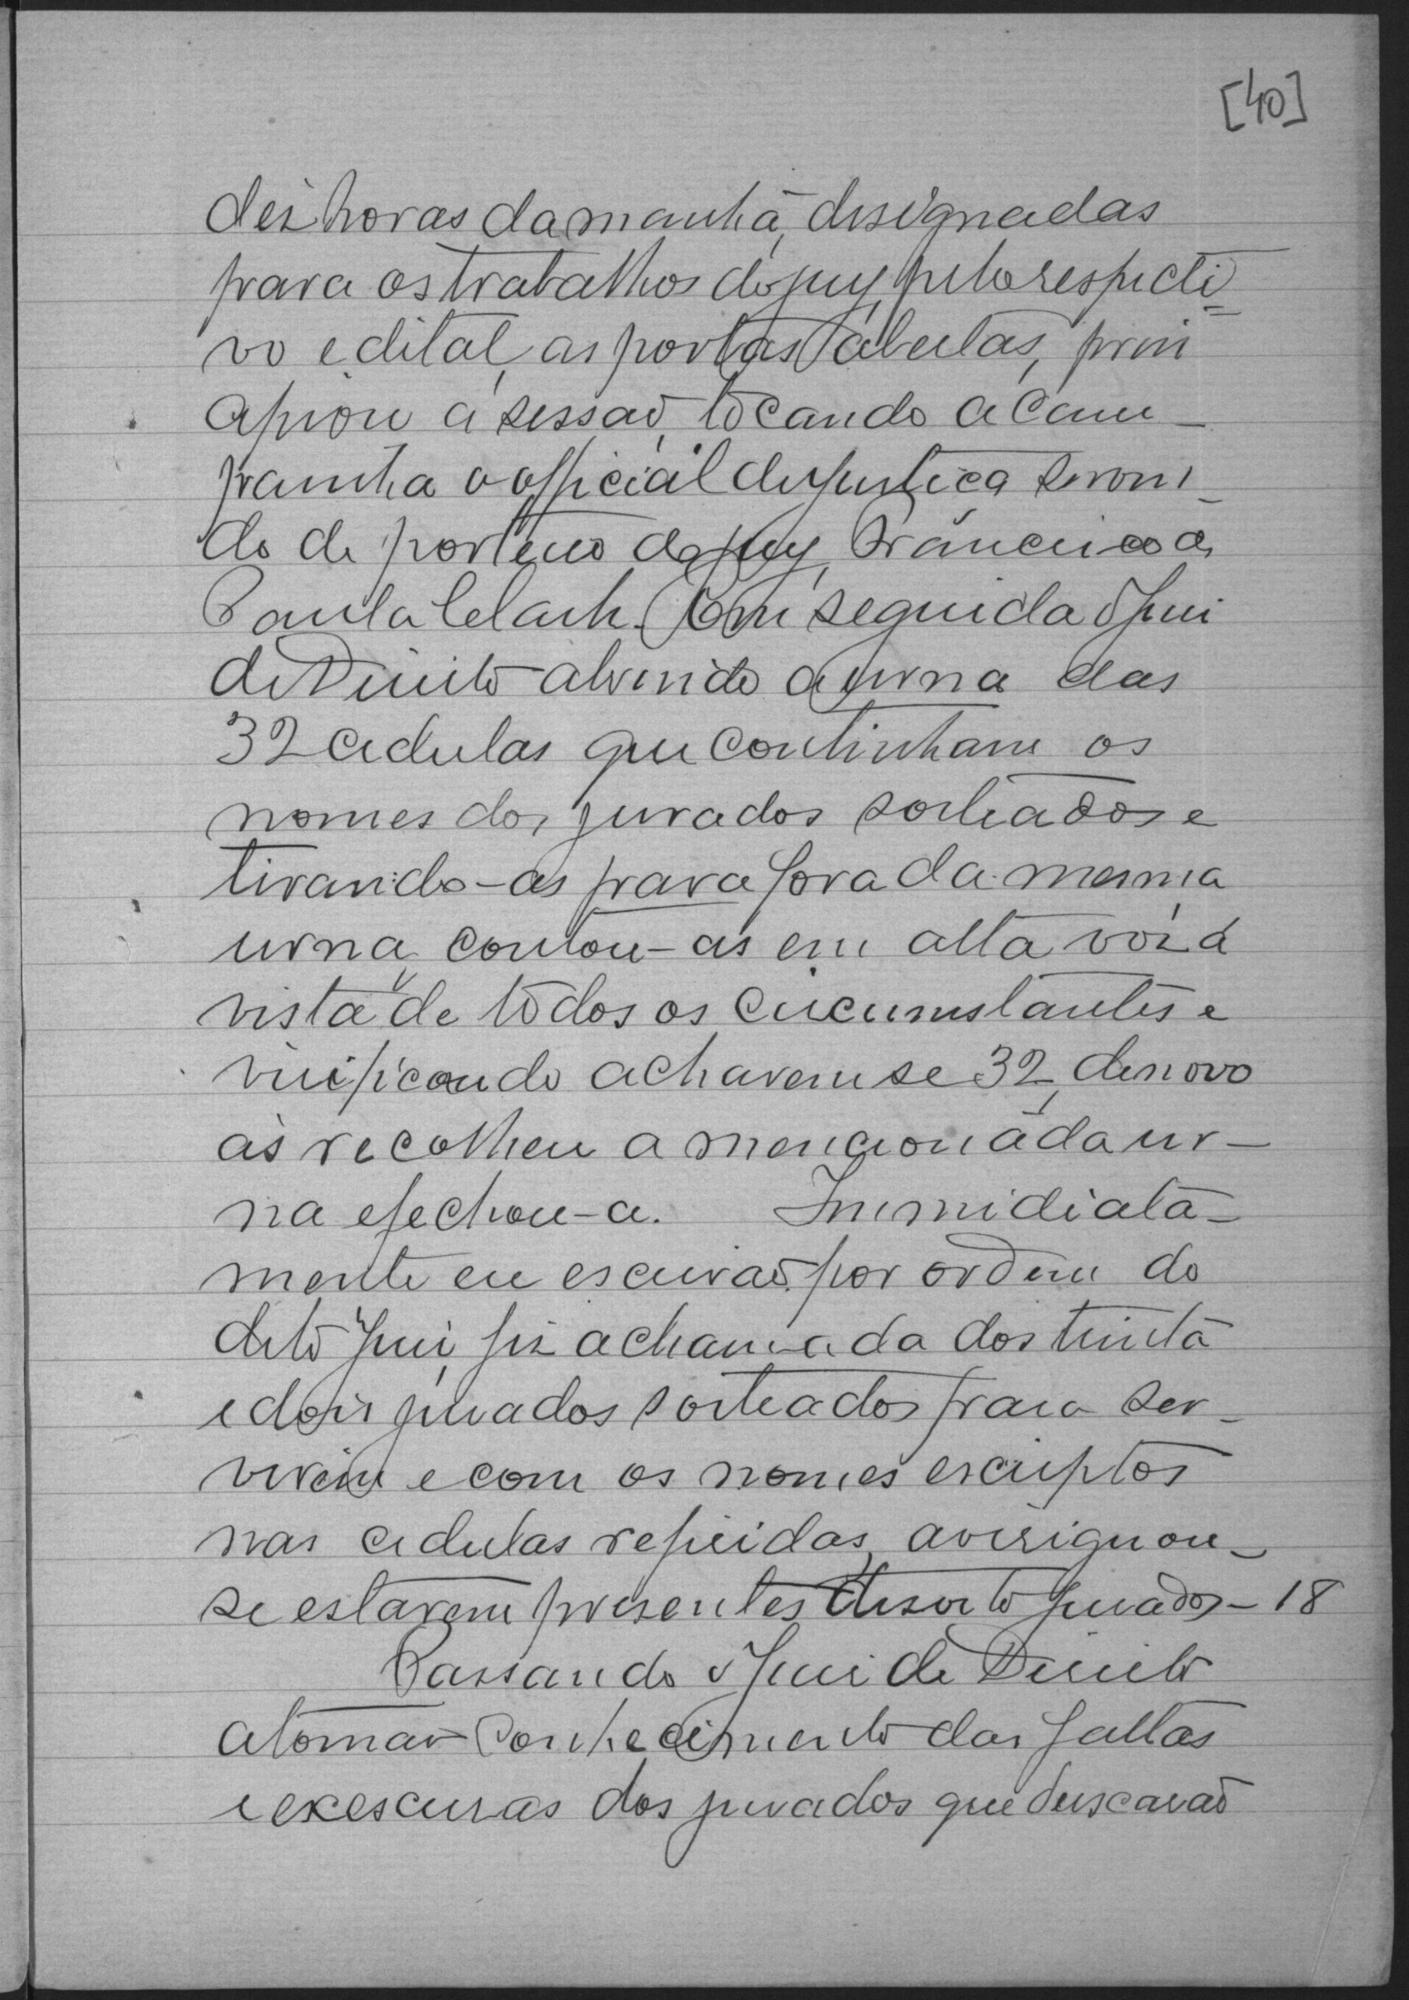 [40]
dez horas da manhã, designadas
para os trabalhos do jury, pelo respecti-
vo edital, as portas abertas, prin
cipiou a sessaõ, tocando a cam-
painha o official de justiça servin-
do de porteiro do jury, Francisco de
Paula Em seguida o Juiz
de Direito abrindo a urna das
32 cedulas que continham os
nomes dos jurados sorteados e
tirando-as para fora da mesma
urna, contou-as em alta voz á
vista de todos os circumstantes e
verificando acharem se 32, de novo
as recolheu a mencionada ur-
na e fechou-a. Immidiata-
mente eu escrivaõ por ordem do
dito Juiz fiz a chamada dos trinta
e dois jurados sorteados para ser-
virem e com os nomes escriptos
nas cedulas referidas, averiguou-
se estarem presentes desoito jurados - 18
Passando o Juiz de Direito
a tomar conhecimento das faltas
e excscusas dos jurados que